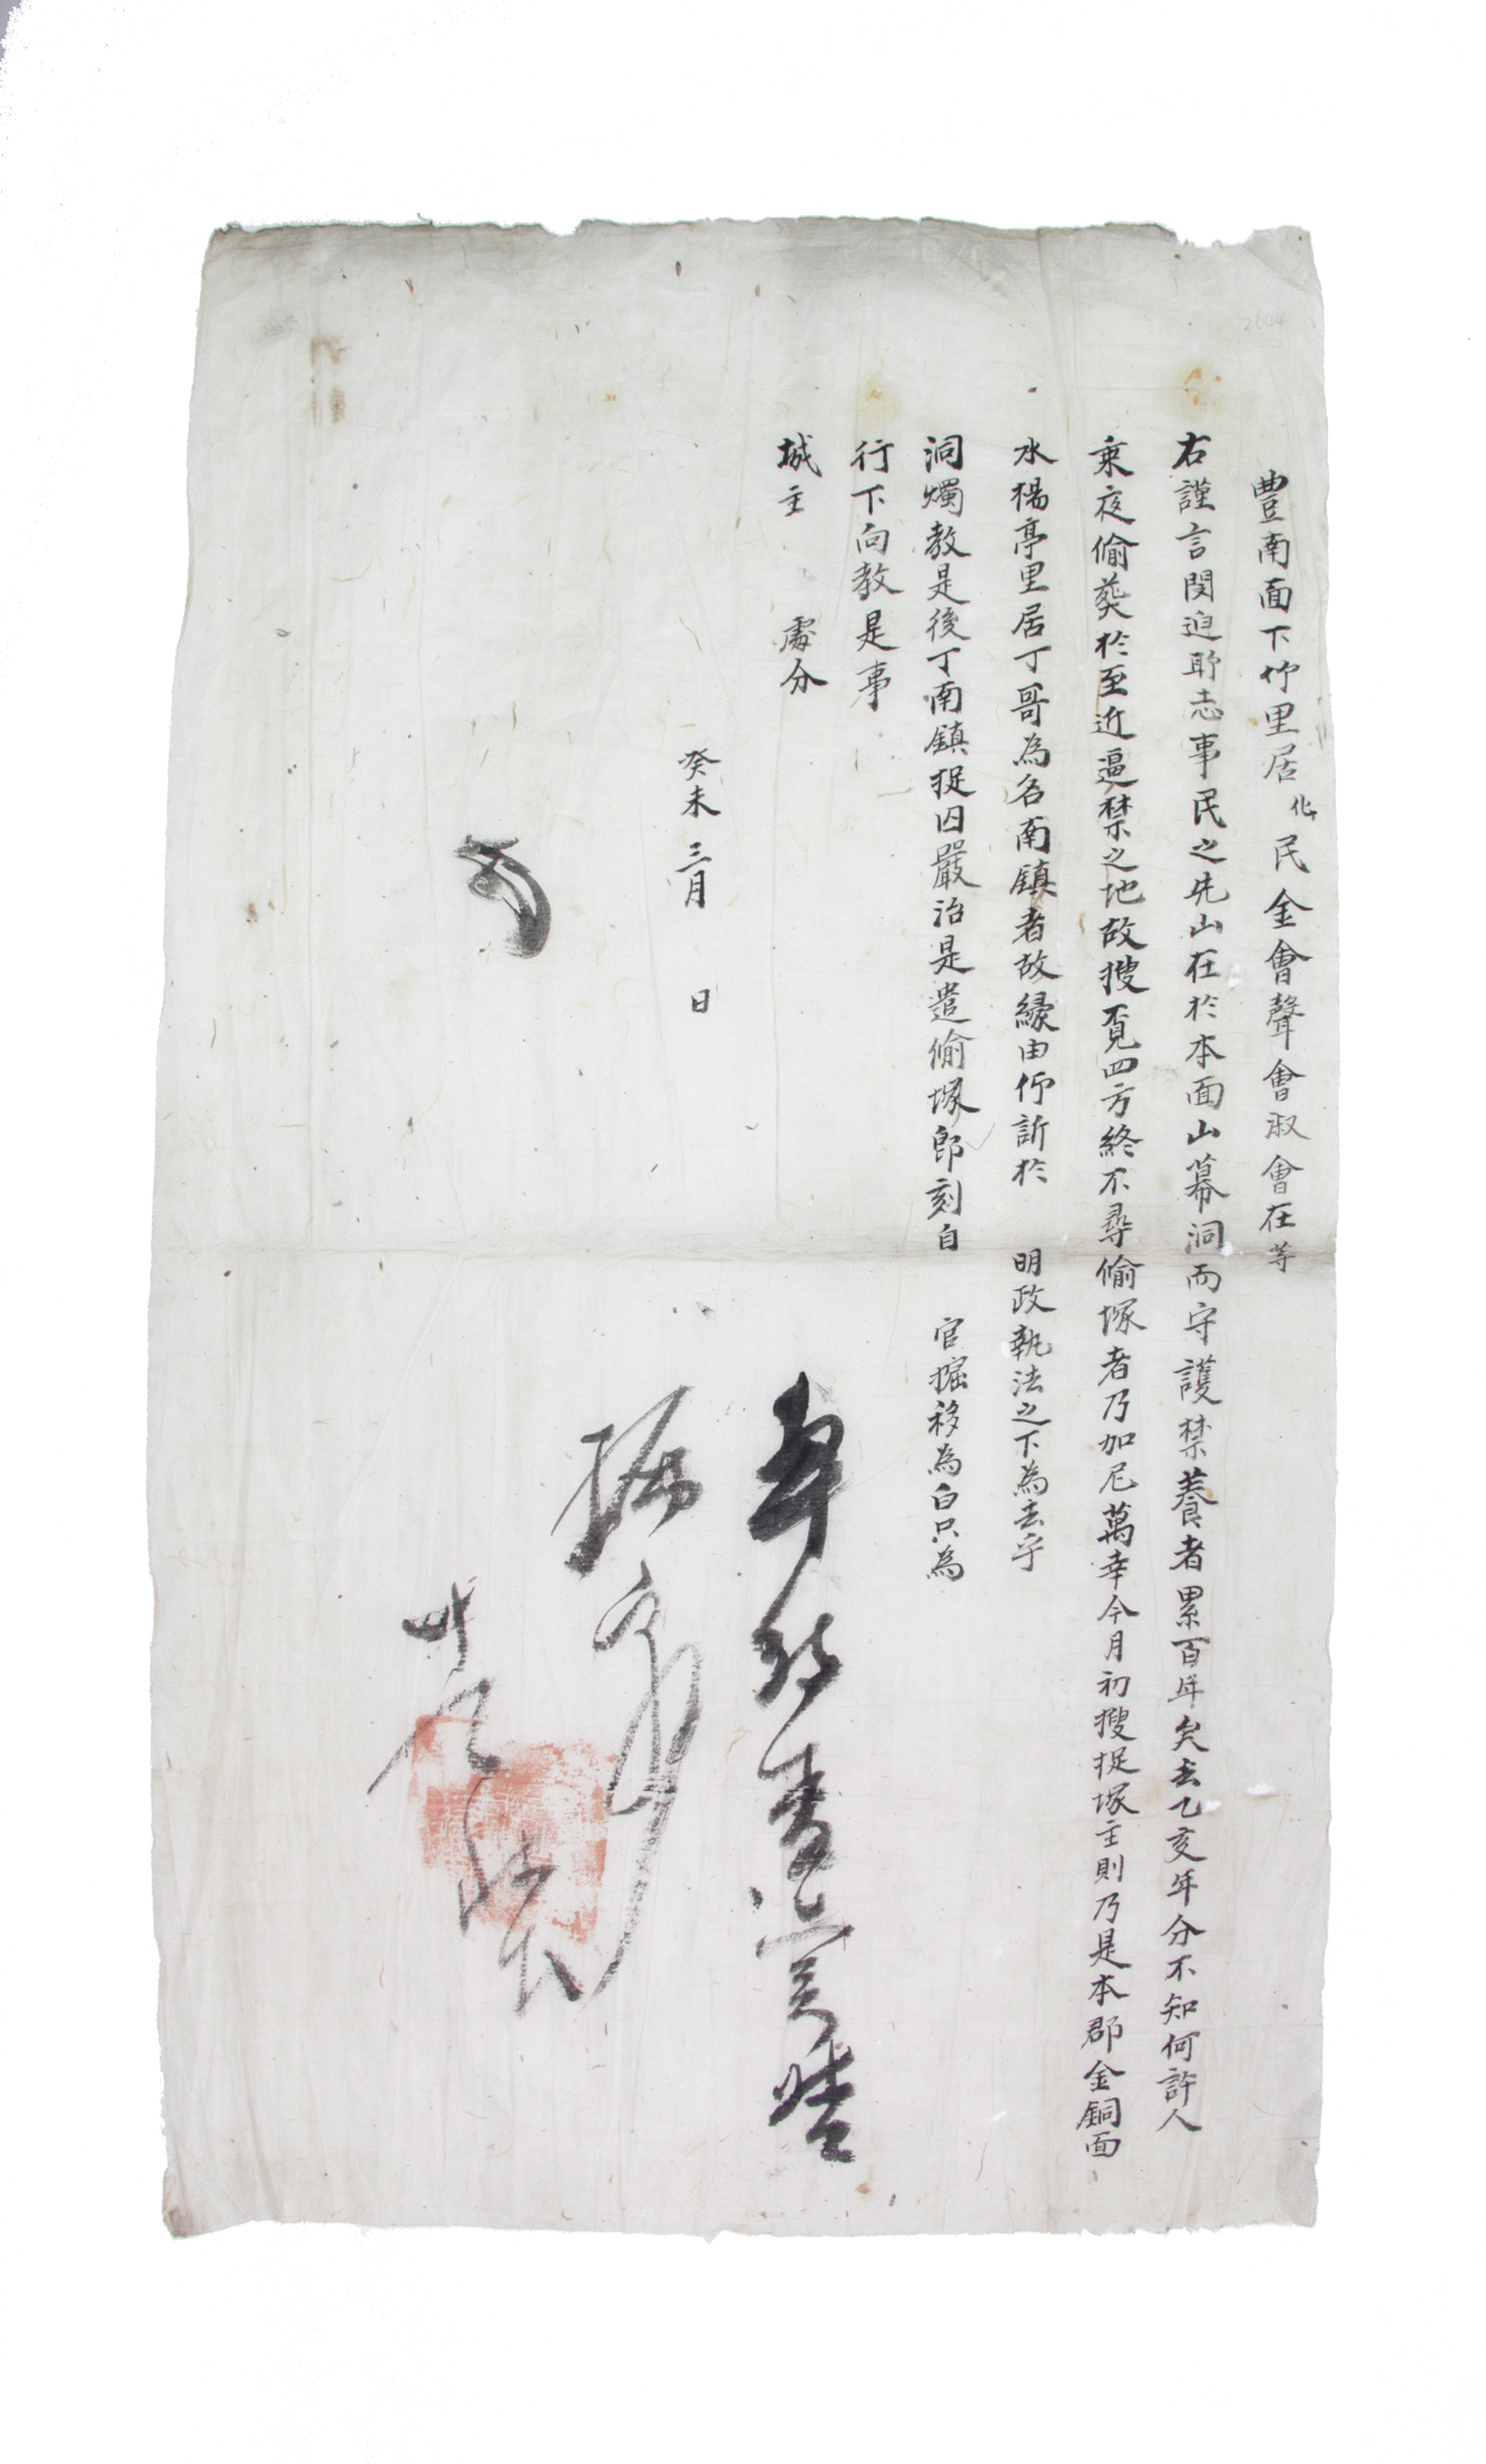 豊南面下竹里居化民金會聲會淑會在等
右謹言悶迫耶志事民之先山在於本面山幕洞而守護禁養者累百年矣去乙亥年分不知何許人
乗夜偷葬於至近逼禁之地故搜覓四方終不尋偷塚者乃加尼萬幸今月初搜捉塚主則乃是本郡金銅面
水楊亭里居丁哥為名南鎮者故緣由仰訴於 明政執法之下為去乎
洞燭教是後丁南鎮捉囚嚴治是遣偷塚即刻自 官掘移為白只為
行下向教是事
城主 處分
癸未三月 日